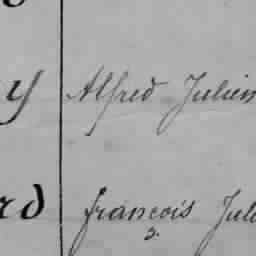 y Alfred Julien
rd françois Jul